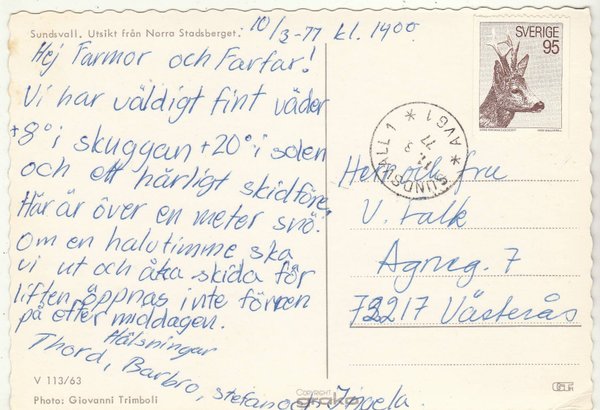 Sundsvall. Utsikt från Norra Stadsberget.
10/3-77 kl. 1400.
Hej Farmor och Farfar!
Vi har väldigt fint väder
+8° i skuggan +20° i solen
och ett härligt skidföre.
Här är över en meter snö.
Om en halvtimme ska
vi ut och åka skida för
liften öppnas inte förren
på efter middagen.
Hälsningar
Thord, Barbro, Stefan och Ingela.
V 113/63
Photo: Giovanni Trimboli
SVERIGE
95
SUNDSVALL 1 * AVG 1 *
3
77
Herr och fru
V. Falk
Agneg. 7
72217 Västerås
Copyright